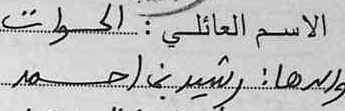 الاسم العائلي : الحوات
والدها : رشيد بن احمد